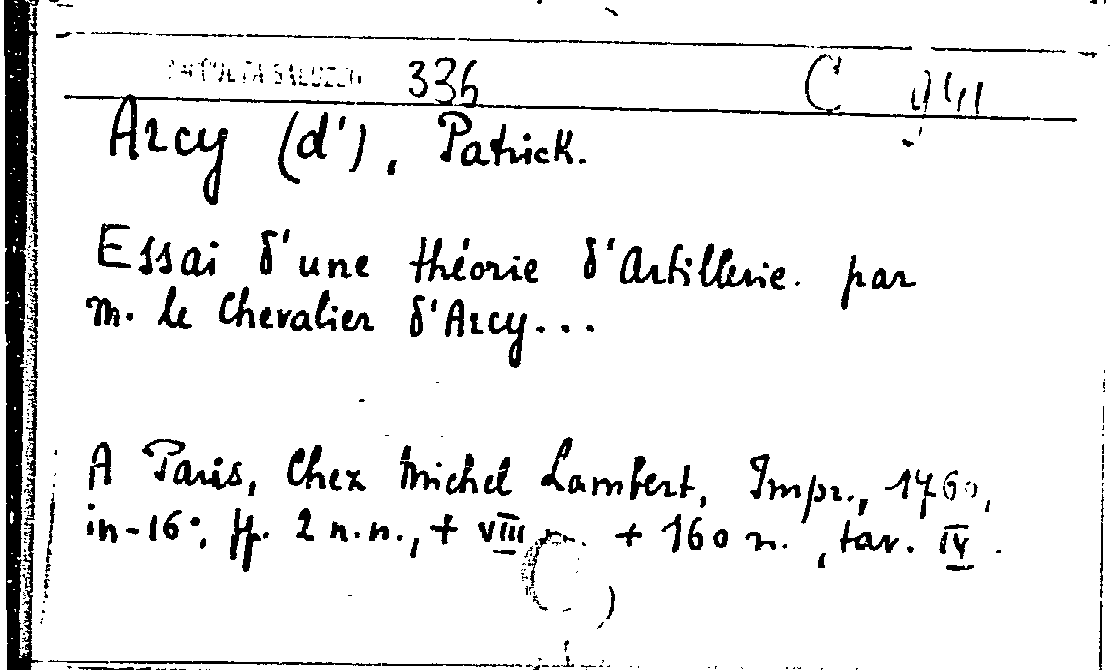 RACCOLTA SALUZZO 336 C
Arcy (d'), Patrick.
Essai d'une théorie d'Artillerie. par
m. le Chevalier d'Arcy...
A Paris, Chez Michel Lambert, Impr., 1760,
in-16°, ff. 2 n.n., + VIII n. + 160 n., tav. IV.